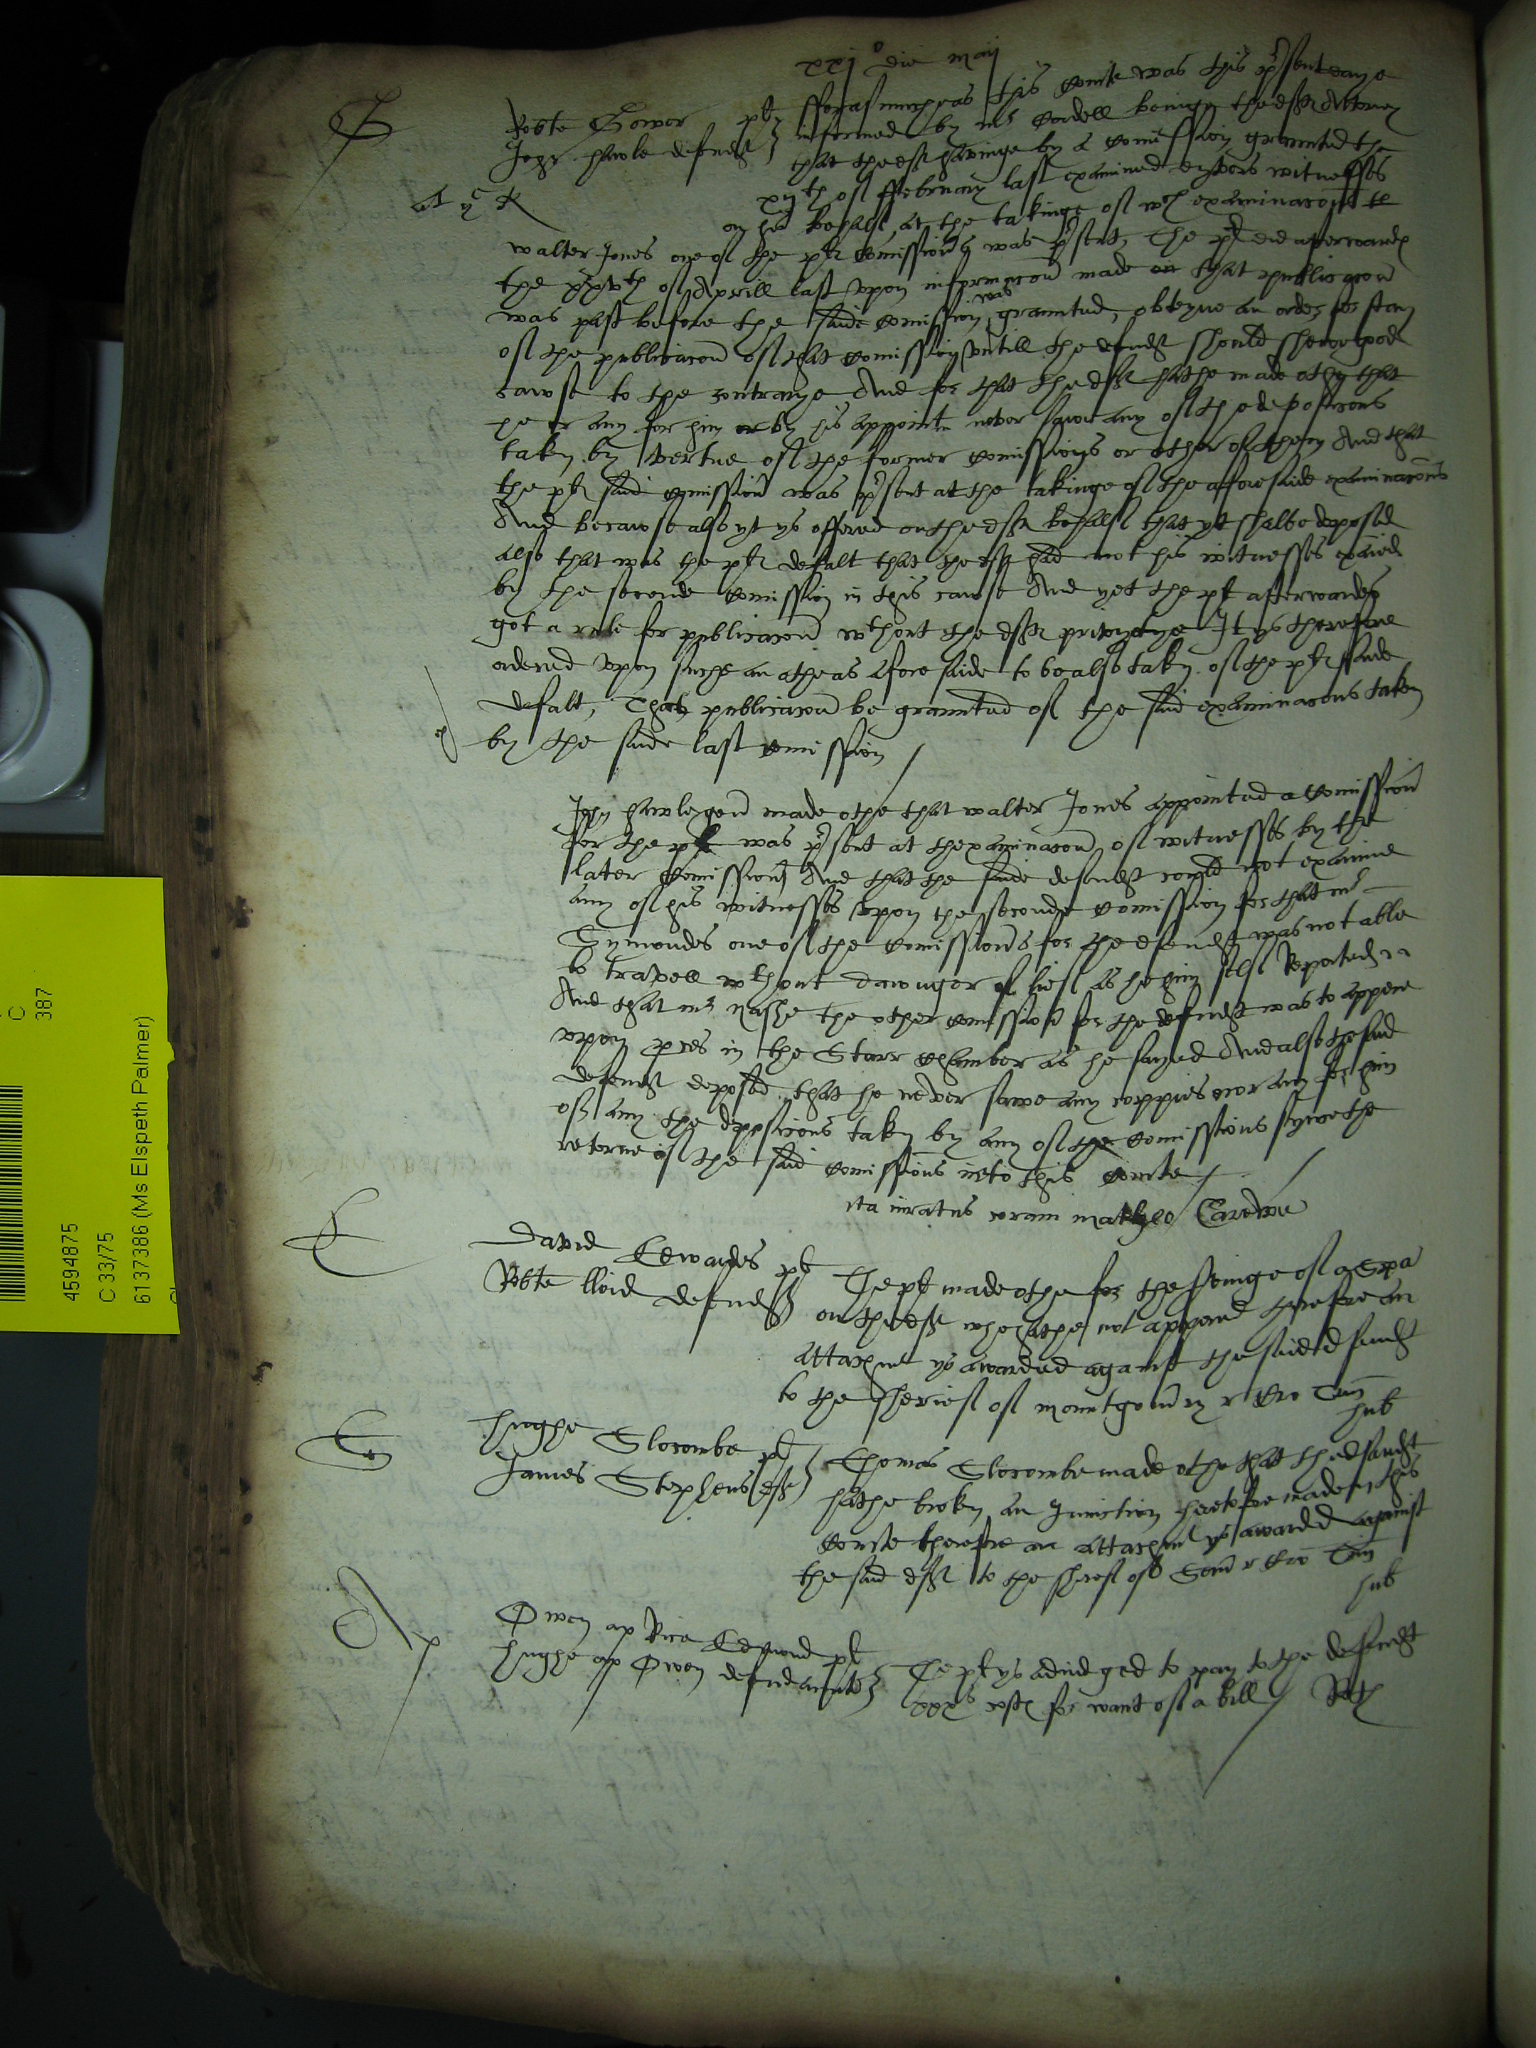 xxj° die maij
Robte Gower pl
John Hawle defendt
fforasmuche as this Courte was this pnt daye
informed by mr Cordell beinge the deft Attorney
that the deft havinge by a Comission graunted the
xijth of ffebruary last examined dyvers witnesses
on his behalf at the takinge of wch examinacons
walter Jones one of the pl Comissioners was psent, The pl did afterwards
the xxvth of Aprill last vpon informacon made that publicacon
was past before the saide Comission was graunted, obteyne an order for stay
of the publicacon of that Comission vntill the defendt should shewe good
cawse to the contrarye And for that the deft hathe made othe that
he or any for him or by his appointmt never sawe any of the deposicons
taken by vertue of the former Comissions or other of them And that
the pl said Comissioner was psent at the takinge of the afforesaide examinacons
And because also yt ys offered on the deft behalf that yt shalbe deposed
also that was the pl defalt that the deft had not his witnesses examined
by the seconde Comission in this cause And yet the pl afterwardes
got a rule for publicacon wthout the deft privytye It ys therefore
ordered vpon suche an othe as afore saide to be also taken of the pl saide
defalt, That publicacon be graunted of the said examinacons taken
by the saide last Comission
John Hawle gent made othe that walter Jones appointed a Comissioner
for the pl was psent at thexaminacon of witnesses by the
later Comission And that the saide defendt could not examine
any of his witnesses vpon the seconde Comission for that mr
Symondes one of the Comissioners for the defendt was not able
to travell wthout daunger of lief as he him self Reported
And that mr Nashe the other Comissioner for the defendt was to appere
vpon pces in the Starr Chamber as he sayed And also the said
defendt deposed that he never sawe any coppies nor any for him
of any the deposicons taken by any of the Comissions sythe the
retorne of the said Comissions into this Courte
ita iuratus coram Matheo Carewe
David Edwardes pl
Robte lloid defendt
The pl made othe for the servinge of a spa
on the deft who hathe not appered therefore an
attachmt ys awarded against the said defendt
to the sherief of mountgomry r Cro Trin
hub
Hughe Slocombe pl
James Stephens deft
Thomas Slocombe made othe that the defendt
hathe broken an Iniunction heretofore made in this
Courte therefore an attachmt ys awarded against
the said deft to the sherief of Som r Cro Trin
hub
Owen ap Rice Edmond pl
Hughe ap Owen defendaunte
The pl ys adiudged to pay to the defendt
xxxs cost for want of a bill
4594875
C 33/75
6137386 (Ms Elspeth Palmer)
C
387